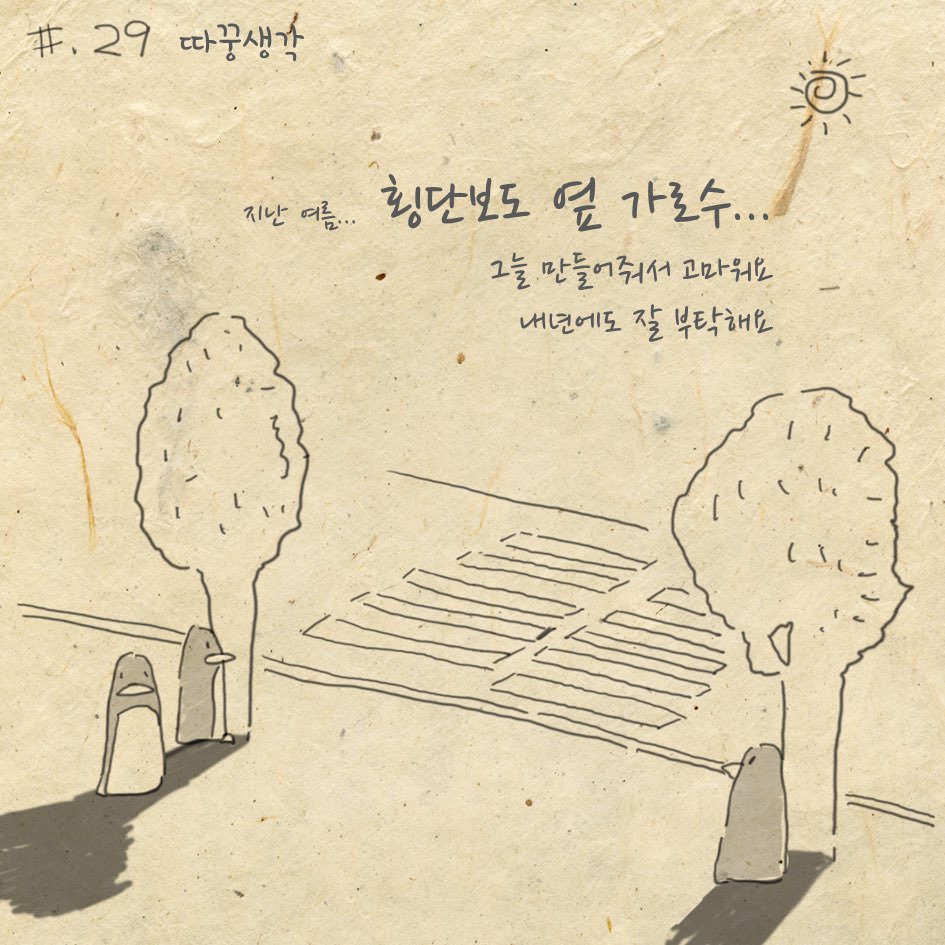 #.29 따꿍생각
지난 여름... 횡단보도 옆 가로수...
그늘 만들어줘서 고마워요
내년에도 잘 부탁해요